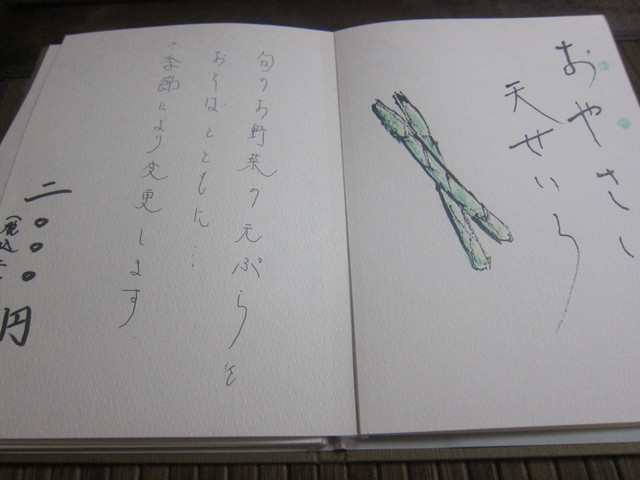 おやさい
天せいろ
旬のお野菜の天ぷらを
おそばとともに…
※季節により変更します
二〇〇〇円